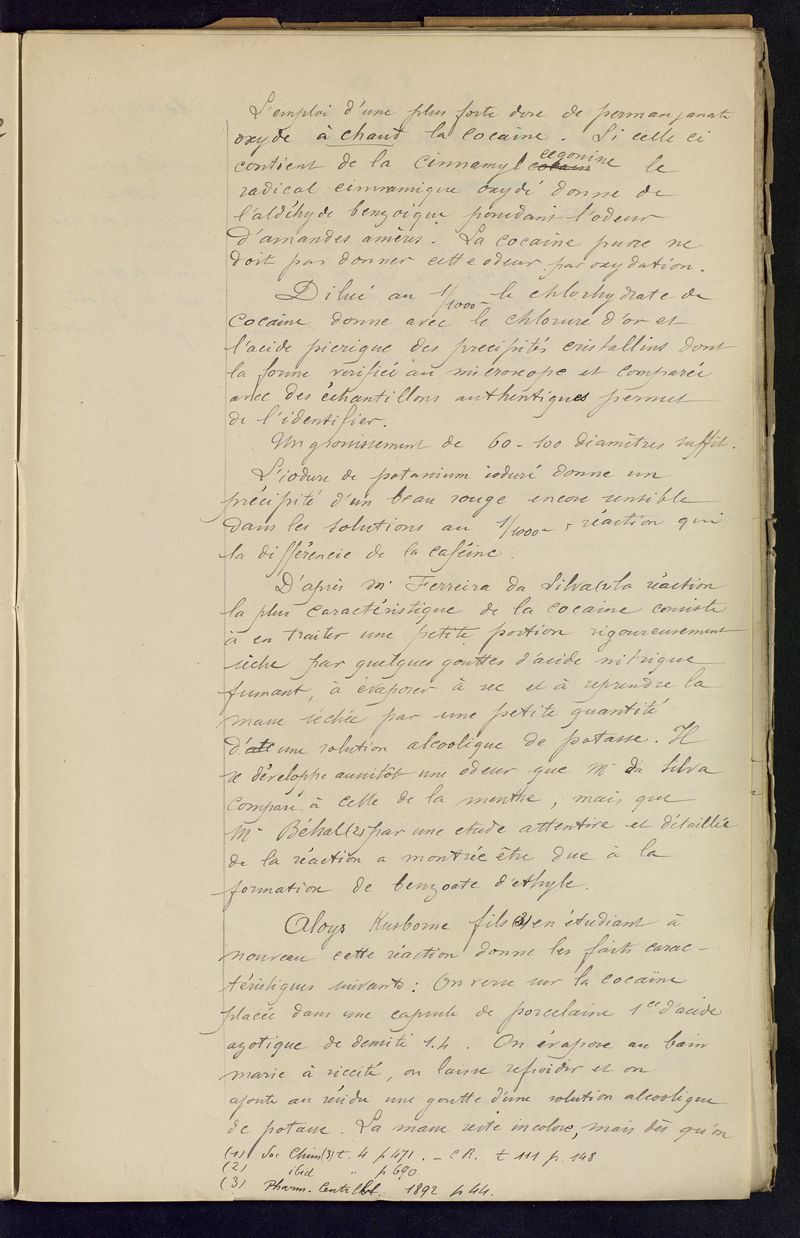 L'emploi d'une plus forte dose de permanganate
oxyde à chaud la cocaine. Si celle ci
contient de la Cinnamyl cocain ecgonine le
radical cinnamique oxydé donne de
l'aldéhyde benzoïque possedant l'odeur
d'amandes amères. La cocaïne pure ne
doit pas donner cette odeur par oxydation.
Dilué au 1/1000 le chlorhydrate de
Cocaïne donne avec le chlorure d'or et
l'acide picrique des precipités cristallins dont
la forme verifiée au microscope et comparée
avec des échantillons authentiques permet
de l'identifier.
Un grossissement de 60-100 diamètres suffit.
L'iodure de potassium ioduré donne un
précipité d'un beau rouge encore sensible
dans les solutions au 1/1000, réaction qui
la différencie de la caféine.
D'après Mr Ferreira da Silva (1) la réaction
la plus caractéristique de la cocaïne consiste
à en traiter une petite portion rigoureusement
sèche par quelques gouttes d'acide nitrique
fumant, à évaporer à sec et à reprendre la
masse séchée par une petite quantité
d'une solution alcoolique de potasse. Il
se développe aussitôt une odeur que Mr da Silva
compare à celle de la menthe, mais que
Mr Béhal (2) par une etude attentive et détaillée
de la réaction a montrée être due à la
formation de benzoate d'ethyle.
Aloys Kusborne fils (3) en étudiant à
nouveau cette réaction donne les faits carac-
téristiques suivants : On verse sur la cocaïne
placée dans une capsule de porcelaine 1cc d'acide
azotique de densité 1.4. On évapore au bain
marie à siccité, on laisse refroidir et on
ajoute au résidu une goutte d'une solution alcoolique
de potasse. La masse reste incolore, mais dès qu'on
(1) Soc Chim (3) t. 4 p 471. - C R. t 111 p. 148
(2) ibid " p 690
(3) Pharm. Centralbl. 1892 p 44.